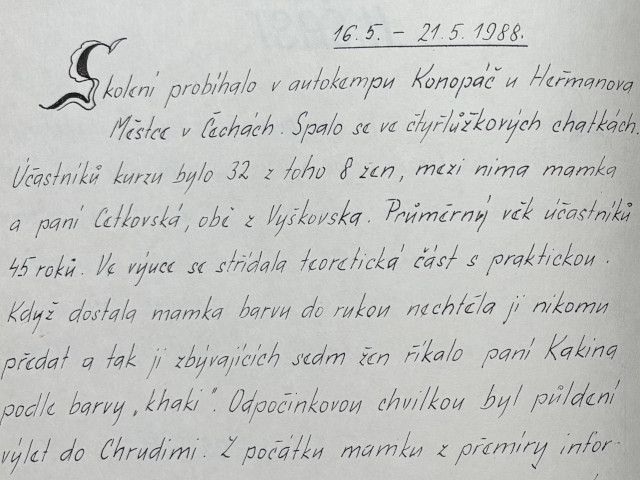 16.5. – 21.5.1988.
Školení probíhalo v autokempu Konopáč u Heřmanova
Městce v Čechách. Spalo se ve čtyřlůžkových chatkách.
Účastníků kurzu bylo 32 z toho 8 žen, mezi nima mamka
a paní Cetkovská, obě z Vyškovska. Průměrný věk účastníků
45 roků. Ve výuce se střídala teoretická část s praktickou.
Když dostala mamka barvu do rukou nechtěla ji nikomu
předat a tak ji zbývajících sedm žen říkalo paní Kakina
podle barvy „khaki". Odpočinkovou chvilkou byl půldení
výlet do Chrudimi. Z počátku mamku z přemíry infor-